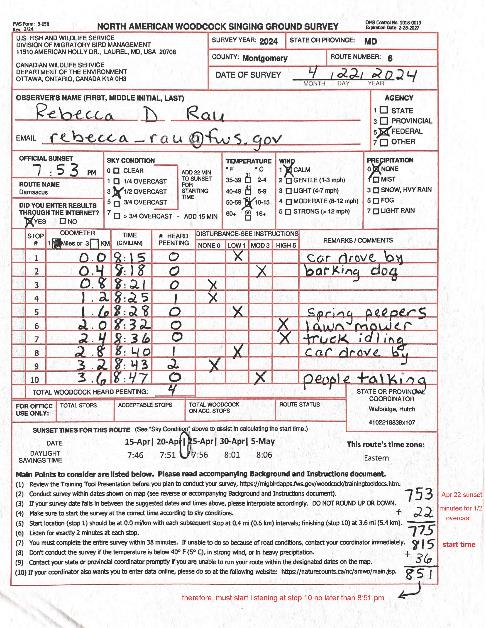 FWS Form: 3-156
NORTH AMERICAN WOODCOCK SINGING GROUND SURVEY
OMB Control No. 1018-0019
U.S. FISH AND WILDLIFE SERVICE
DIVISION OF MIGRATORY BIRD MANAGEMENT
11510 AMERICAN HOLLY DR., LAUREL, MD, USA 20708
CANADIAN WILDLIFE SERVICE
DEPARTMENT OF THE ENVIRONMENT
OTTAWA, ONTARIO, CANADA K1A 0H3
SURVEY YEAR: 2024 STATE OR PROVINCE: MD
COUNTY: Montgomery ROUTE NUMBER: 6
DATE OF SURVEY 4 22 2024
MONTH DAY YEAR
OBSERVER'S NAME (FIRST, MIDDLE INITIAL, LAST)
Rebecca D Rau
EMAIL rebecca_rau@fws.gov
AGENCY
1 STATE
3 PROVINCIAL
5 FEDERAL
7 OTHER
OFFICIAL SUNSET
7:53 PM
ROUTE NAME
Damascus
DID YOU ENTER RESULTS THROUGH THE INTERNET?
YES NO
SKY CONDITION
0 CLEAR
1 1/4 OVERCAST
3 1/2 OVERCAST
5 3/4 OVERCAST
7 > 3/4 OVERCAST - ADD 15 MIN
ADD 22 MIN TO SUNSET FOR STARTING TIME
TEMPERATURE
°F °C
35-39 2-4
40-49 5-9
50-59 10-15
60+ 16+
WIND
1 CALM
2 GENTLE (1-3 mph)
3 LIGHT (4-7 mph)
4 MODERATE (8-12 mph)
6 STRONG (>12 mph)
PRECIPITATION
0 NONE
1 MIST
3 SNOW, HVY RAIN
5 FOG
7 LIGHT RAIN
STOP # ODOMETER 1 Miles or 3 KM TIME (CIVILIAN) # HEARD PEENTING DISTURBANCE-SEE INSTRUCTIONS NONE 0 LOW 1 MOD 3 HIGH 5 REMARKS / COMMENTS
1 0.0 8:15 0 X car drove by
2 0.4 8:18 0 X barking dog
3 0.8 8:21 0 X
4 1.2 8:25 1 X
5 1.6 8:28 0 X Spring peepers
6 2.0 8:32 0 X lawn-mower
7 2.4 8:36 0 X truck idling
8 2.8 8:40 1 X car drove by
9 3.2 8:43 2 X
10 3.6 8:47 0 X people talking
TOTAL WOODCOCK HEARD PEENTING: 4
STATE OR PROVINCIAL COORDINATOR
Walbridge, Hutch
FOR OFFICE USE ONLY: TOTAL STOPS ACCEPTABLE STOPS TOTAL WOODCOCK ON ACC. STOPS ROUTE STATUS
SUNSET TIMES FOR THIS ROUTE (See "Sky Condition" above to assist in calculating the start time.)
DATE 15-Apr 20-Apr 25-Apr 30-Apr 5-May
DAYLIGHT SAVINGS TIME 7:46 7:51 7:56 8:01 8:06
This route's time zone:
Eastern
Main Points to consider are listed below. Please read accompanying Background and Instructions document.
(1) Review the Training Tool Presentation before you plan to conduct your survey, https://migbirdapps.fws.gov/woodcock/trainingtool/docs.htm.
(2) Conduct survey within dates shown on map (see reverse or accompanying Background and Instructions document).
(3) If your survey date falls in between the suggested dates and times above, please interpolate accordingly. DO NOT ROUND UP OR DOWN.
(4) Make sure to start the survey at the correct time according to Sky conditions.
(5) Start location (stop 1) should be at 0.0 mi/km with each subsequent stop at 0.4 mi (0.6 km) intervals; finishing (stop 10) at 3.6 mi (5.4 km).
(6) Listen for exactly 2 minutes at each stop.
(7) You must complete the entire survey within 38 minutes. If unable to do so because of road conditions, contact your coordinator immediately.
(8) Don't conduct the survey if the temperature is below 40° F (5° C), in strong wind, or in heavy precipitation.
(9) Contact your state or provincial coordinator promptly if you are unable to run your route within the designated dates on the map.
(10) If your coordinator also wants you to enter data online, please do so at the following website: https://naturecounts.ca/nc/amwo/main.jsp.
753 Apr 22 sunset
+ 22 minutes for 1/2 overcast
775
815 start time
+ 36
851
therefore, must start listening at stop 10 no later than 8:51 pm